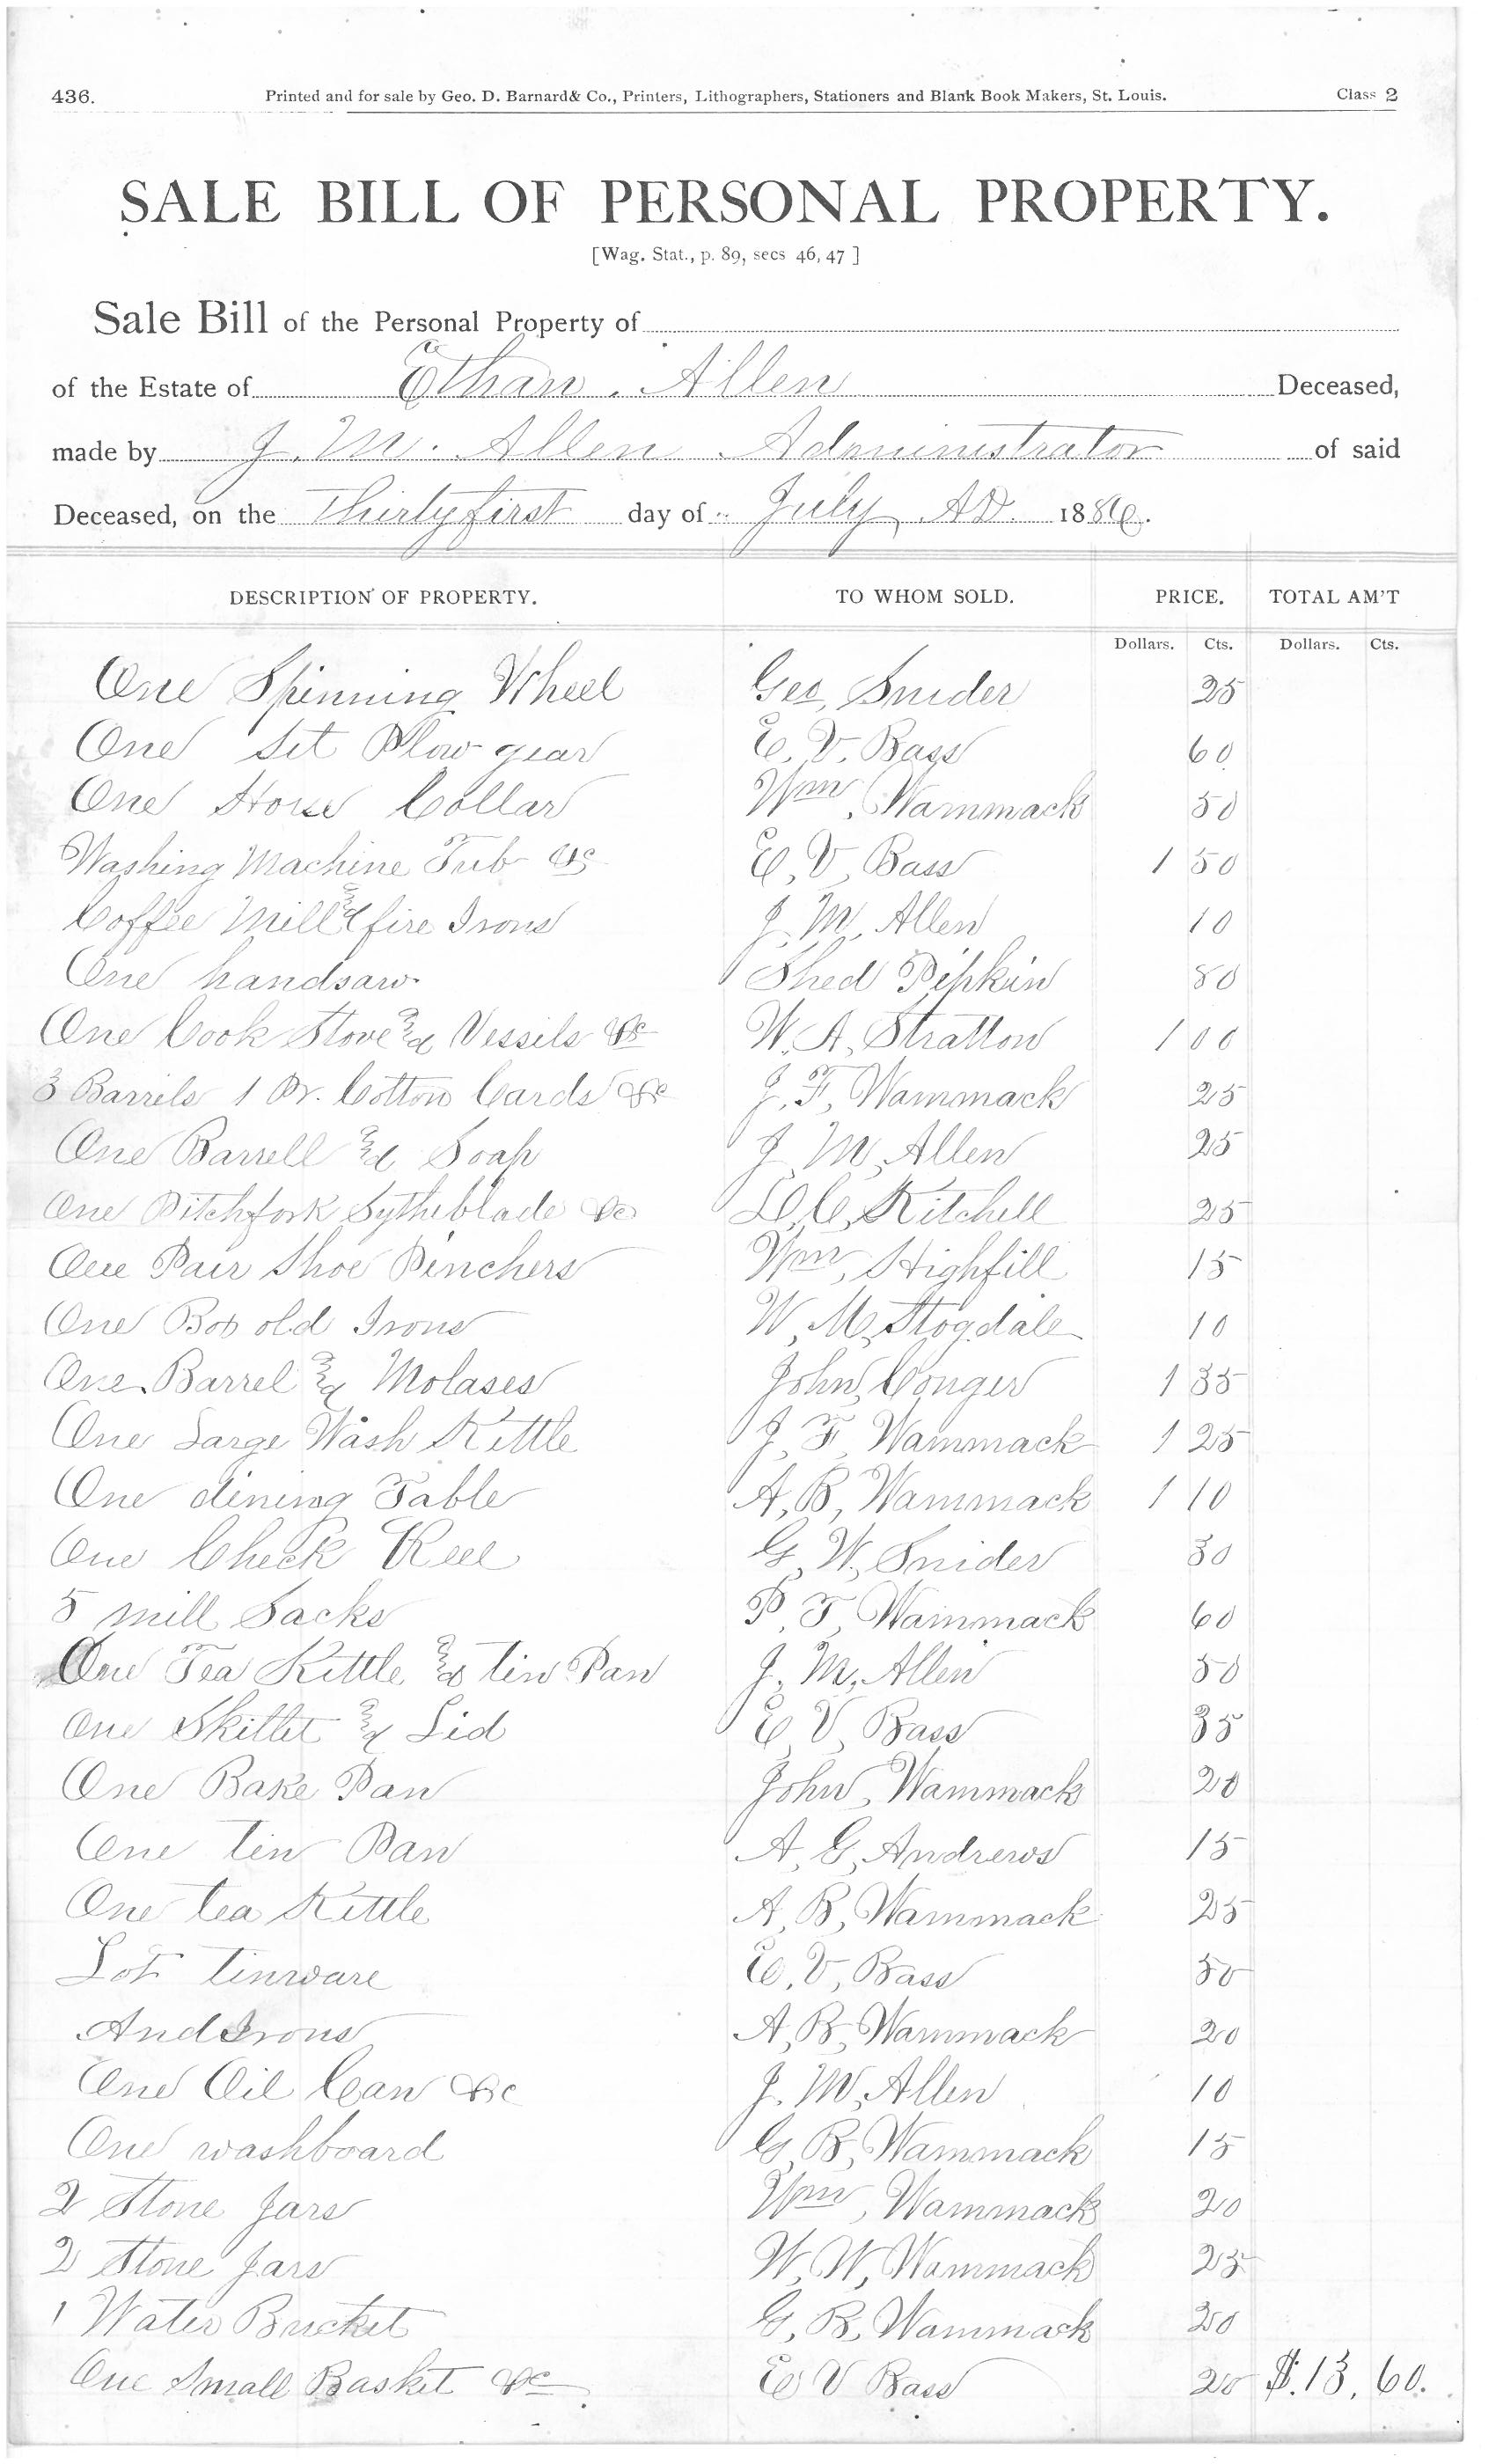 436. Printed and for sale by Geo. D. Barnard & Co., Printers, Lithographers, Stationers and Blank Book Makers, St. Louis. Class 2
SALE BILL OF PERSONAL PROPERTY.
[Wag. Stat., p. 89, secs 46, 47 ]
Sale Bill of the Personal Property of
of the Estate of Ethan. Allen Deceased,
made by J. M. Allen Administrator of said
Deceased, on the Thirtyfirst day of July AD. 1886.
DESCRIPTION OF PROPERTY. TO WHOM SOLD. PRICE. TOTAL AM'T
Dollars. Cts. Dollars. Cts.
One Spinning Wheel Geo, Snider 25
One Set Plow gear E. V. Bass 60
One Horse Collar Wm, Wammack 50
Washing Machine Tub &c E, V, Bass 1 50
Coffee Mill & fire Irons J. M, Allen 10
One handsaw Shed Pipkin 80
One Cook Stove & Vessils &c W. A, Stratton 1 00
3 Barrels 1 Pr. Cotton Cards &c J. F, Wammack 25
One Barrell & Soap J M, Allen 25
One Pitchfork Sytheblade &c L, C, Kitchell 25
One Pair Shoe Pinchers Wm, Highfill 15
One Box old Irons W, M, Stogdale 10
One Barrel & Molases John, Conger 1 35
One Large Wash Kittle J, F Wammack 1 25
One dining Table A, B, Wammack 1 10
One Check Reel G, W, Snider 30
5 mill Sacks P, T, Wammack 60
One Tea Kittle & tin Pan J, M, Allen 50
One Skillet & Lid E V, Bass 35
One Bake Pan John, Wammack 20
One tin Pan A, G, Andrews 15
One tea Kittle A, B, Wammack 25
Lot tinware E, V, Bass 50
And Irons A, B, Wammack 20
One Oil Can &c J. M, Allen 10
One washboard G, B, Wammack 15
2 Stone Jars Wm, Wammack 20
2 Stone Jars W, W, Wammack 25
1 Water Bucket G, B, Wammack 20
One Small Basket &c E V Bass 20 $.13, 60.